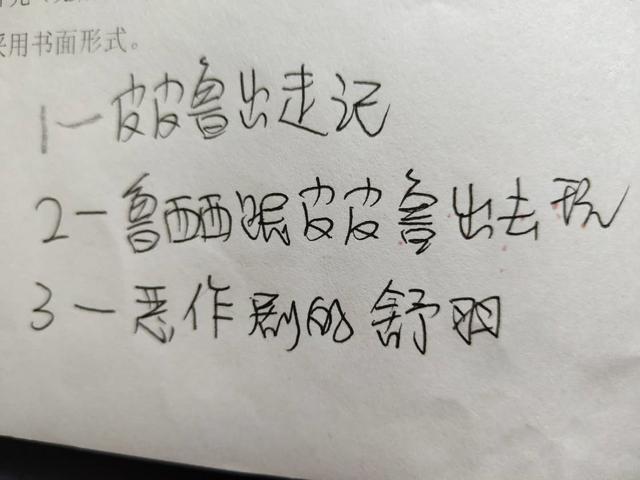 采用书面形式。
1一皮皮鲁出走记
2一鲁西西跟皮皮鲁出去玩
3一恶作剧的舒羽